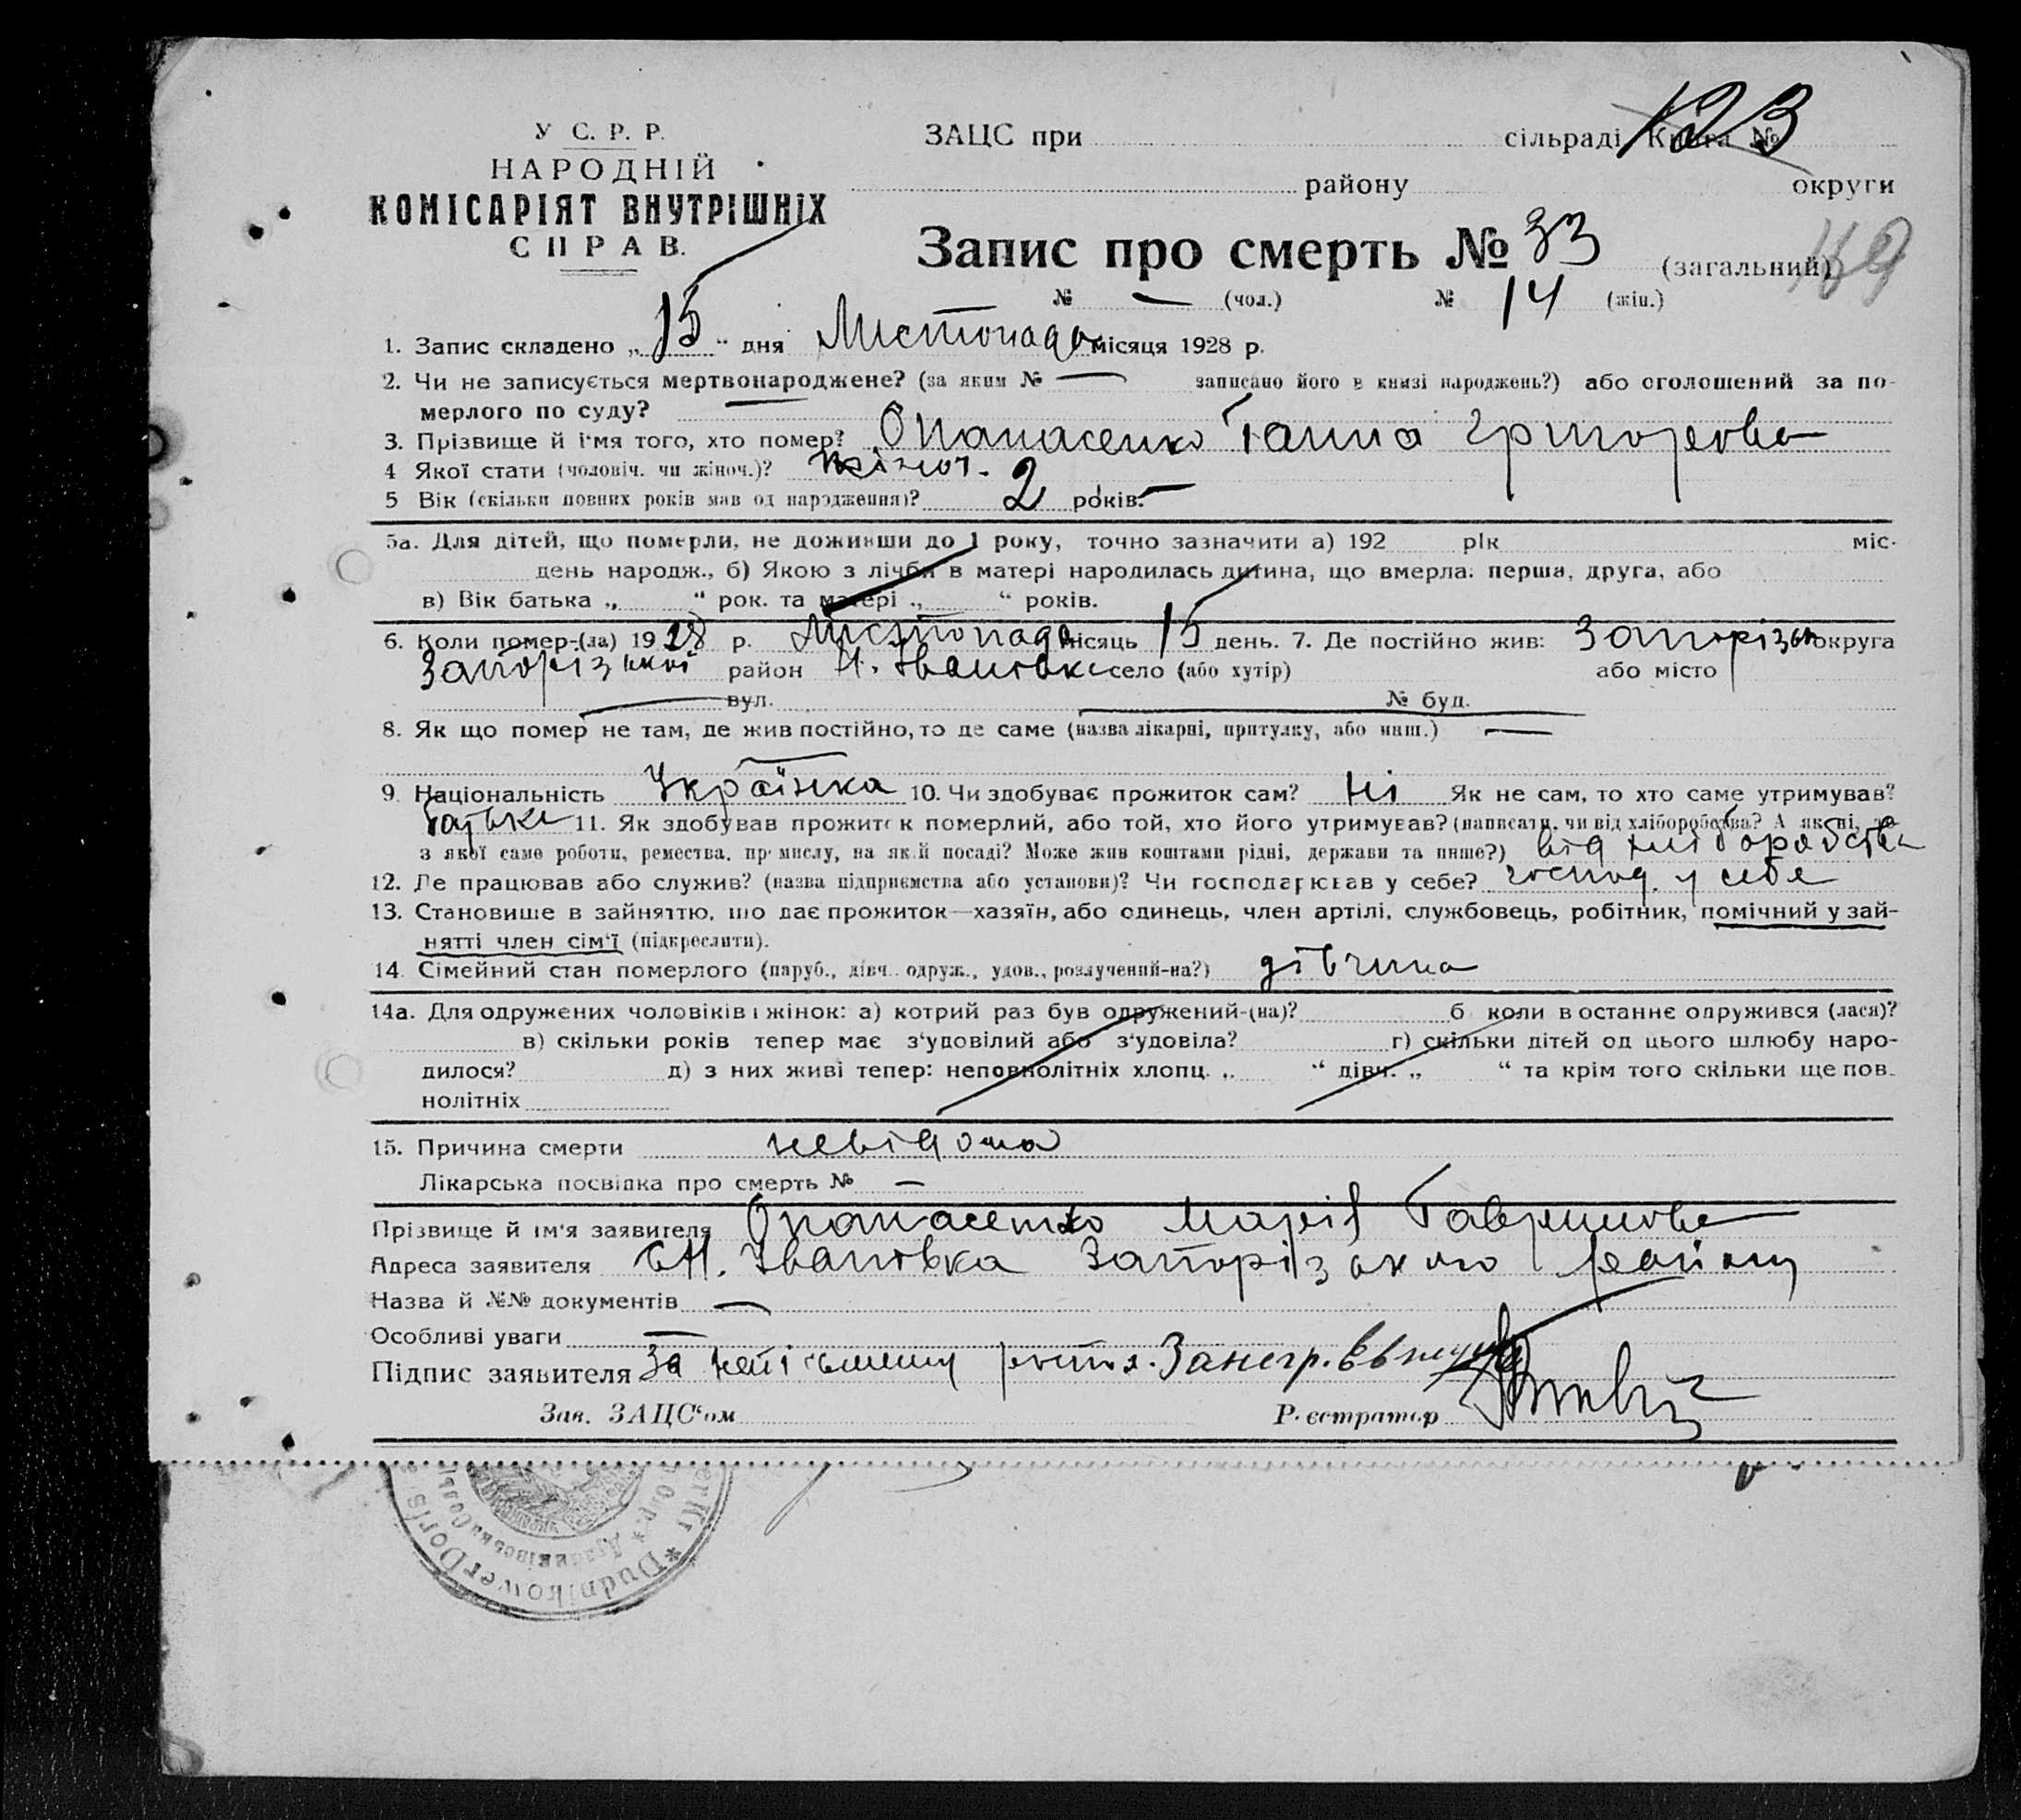 У С. Р. Р.
НАРОДНІЙ
КОМІСАРІЯТ ВНУТРІШНІХ
СПРАВ.
ЗАЦС при сільраді Книга № 123
району округи
Запис про смерть № 33 (загальний)
№ — (чол.) № 14 (жін.)
1. Запис складено „15“ дня Листопада місяця 1928 р.
2. Чи не записується мертвонароджене? (за яким № — записано його в книзі народжень?) або оголошений за по-
мерлого по суду? —
3. Прізвище й ім'я того, хто помер? Опанасенко Ганна Григорова
4 Якої стати (чоловіч. чи жіноч.)? жіноч.
5 Вік (скільки повних років мав од народження)? 2 років. —
5а. Для дітей, що померли, не доживши до 1 року, точно зазначити а) 192 рік міс.
день народж., б) Якою з лічби в матері народилась дитина, що вмерла: перша, друга, або
в) Вік батька „ “ рок. та матері „ “ років.
6. Коли помер-(ла) 1928 р. Листопада місяць 15 день. 7. Де постійно жив: Запорізьк округа
Запорізький район Н. Іванівка село (або хутір) або місто
вул. № буд.
8. Як що помер не там, де жив постійно, то де саме (назва лікарні, притулку, або инш.) —
9. Національність Українка 10. Чи здобуває прожиток сам? ні Як не сам, то хто саме утримував?
батько 11. Як здобував прожиток померлий, або той, хто його утримував? (написати, чи від хліборобства? А як ні, то
з якої саме роботи, ремества, промислу, на якій посаді? Може жив коштами рідні, держави та инше?) від хліборобства
12. Де працював або служив? (назва підприємства або установи)? Чи господарював у себе? господ. у себе
13. Становище в зайняттю, що дає прожиток—хазяїн, або одинець, член артілі, службовець, робітник, помічний у зай-
нятті член сім'ї (підкреслити).
14. Сімейний стан померлого (паруб., дівч. одруж., удов., розлучений-на?) дівчина
14а. Для одружених чоловіків і жінок: а) котрий раз був одружений-(на)? б коли в останнє одружився (лася)?
в) скільки років тепер має з'удовілий або з'удовіла? г) скільки дітей од цього шлюбу наро-
дилося? д) з них живі тепер: неповнолітніх хлопц. „ “ дівч. „ “ та крім того скільки ще пов-
нолітніх
15. Причина смерти невідома
Лікарська посвідка про смерть № —
Прізвище й ім'я заявителя Опанасенко Марія Гаврилова
Адреса заявителя с Н. Іванівка Запорізького району
Назва й №№ документів —
Особливі уваги —
Підпис заявителя За неписьмену
Зав. ЗАЦС'ом Реєстратор
*Dudnikower Dorfs